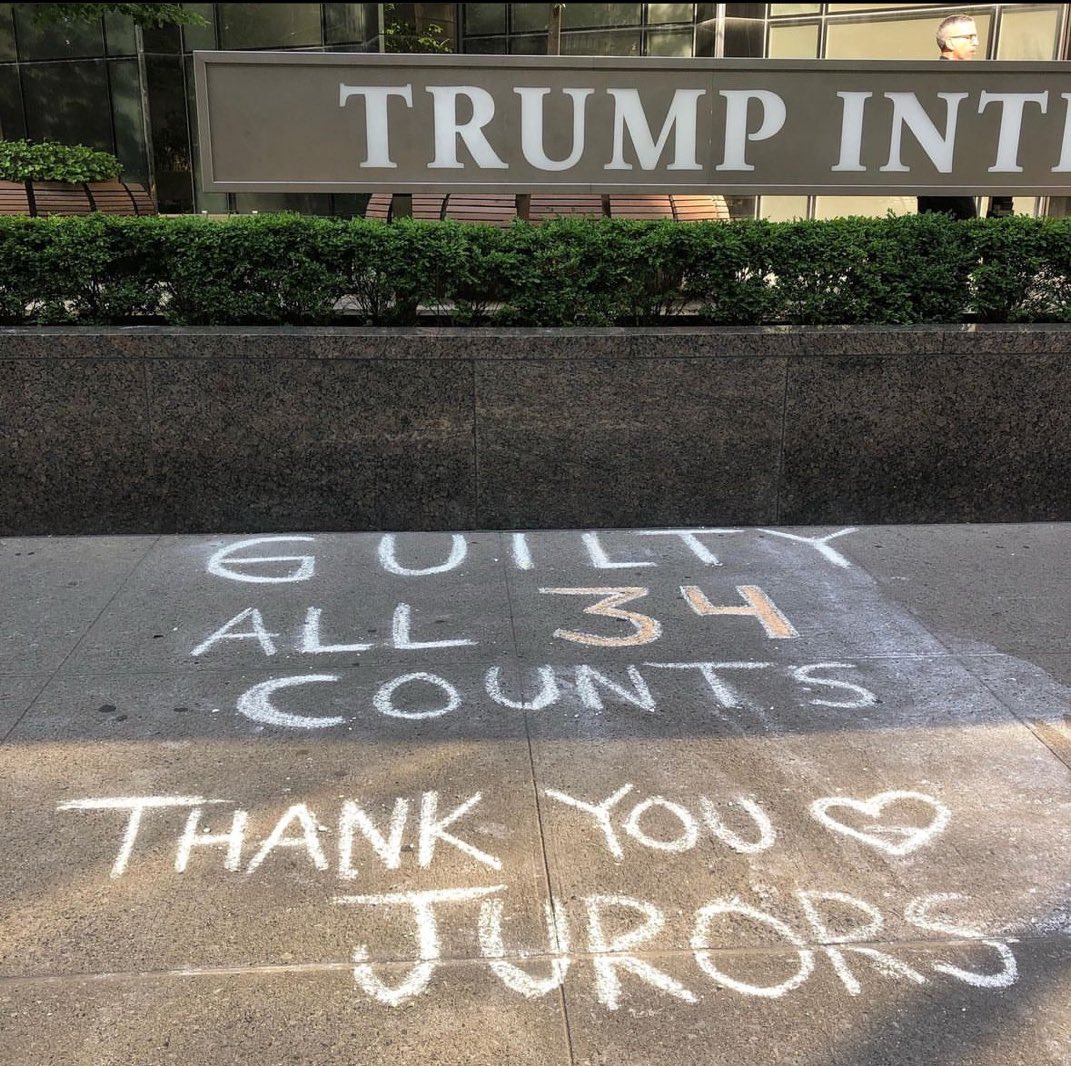 TRUMP INTE
GUILTY
ALL 34
COUNTS
THANK YOU
JURORS